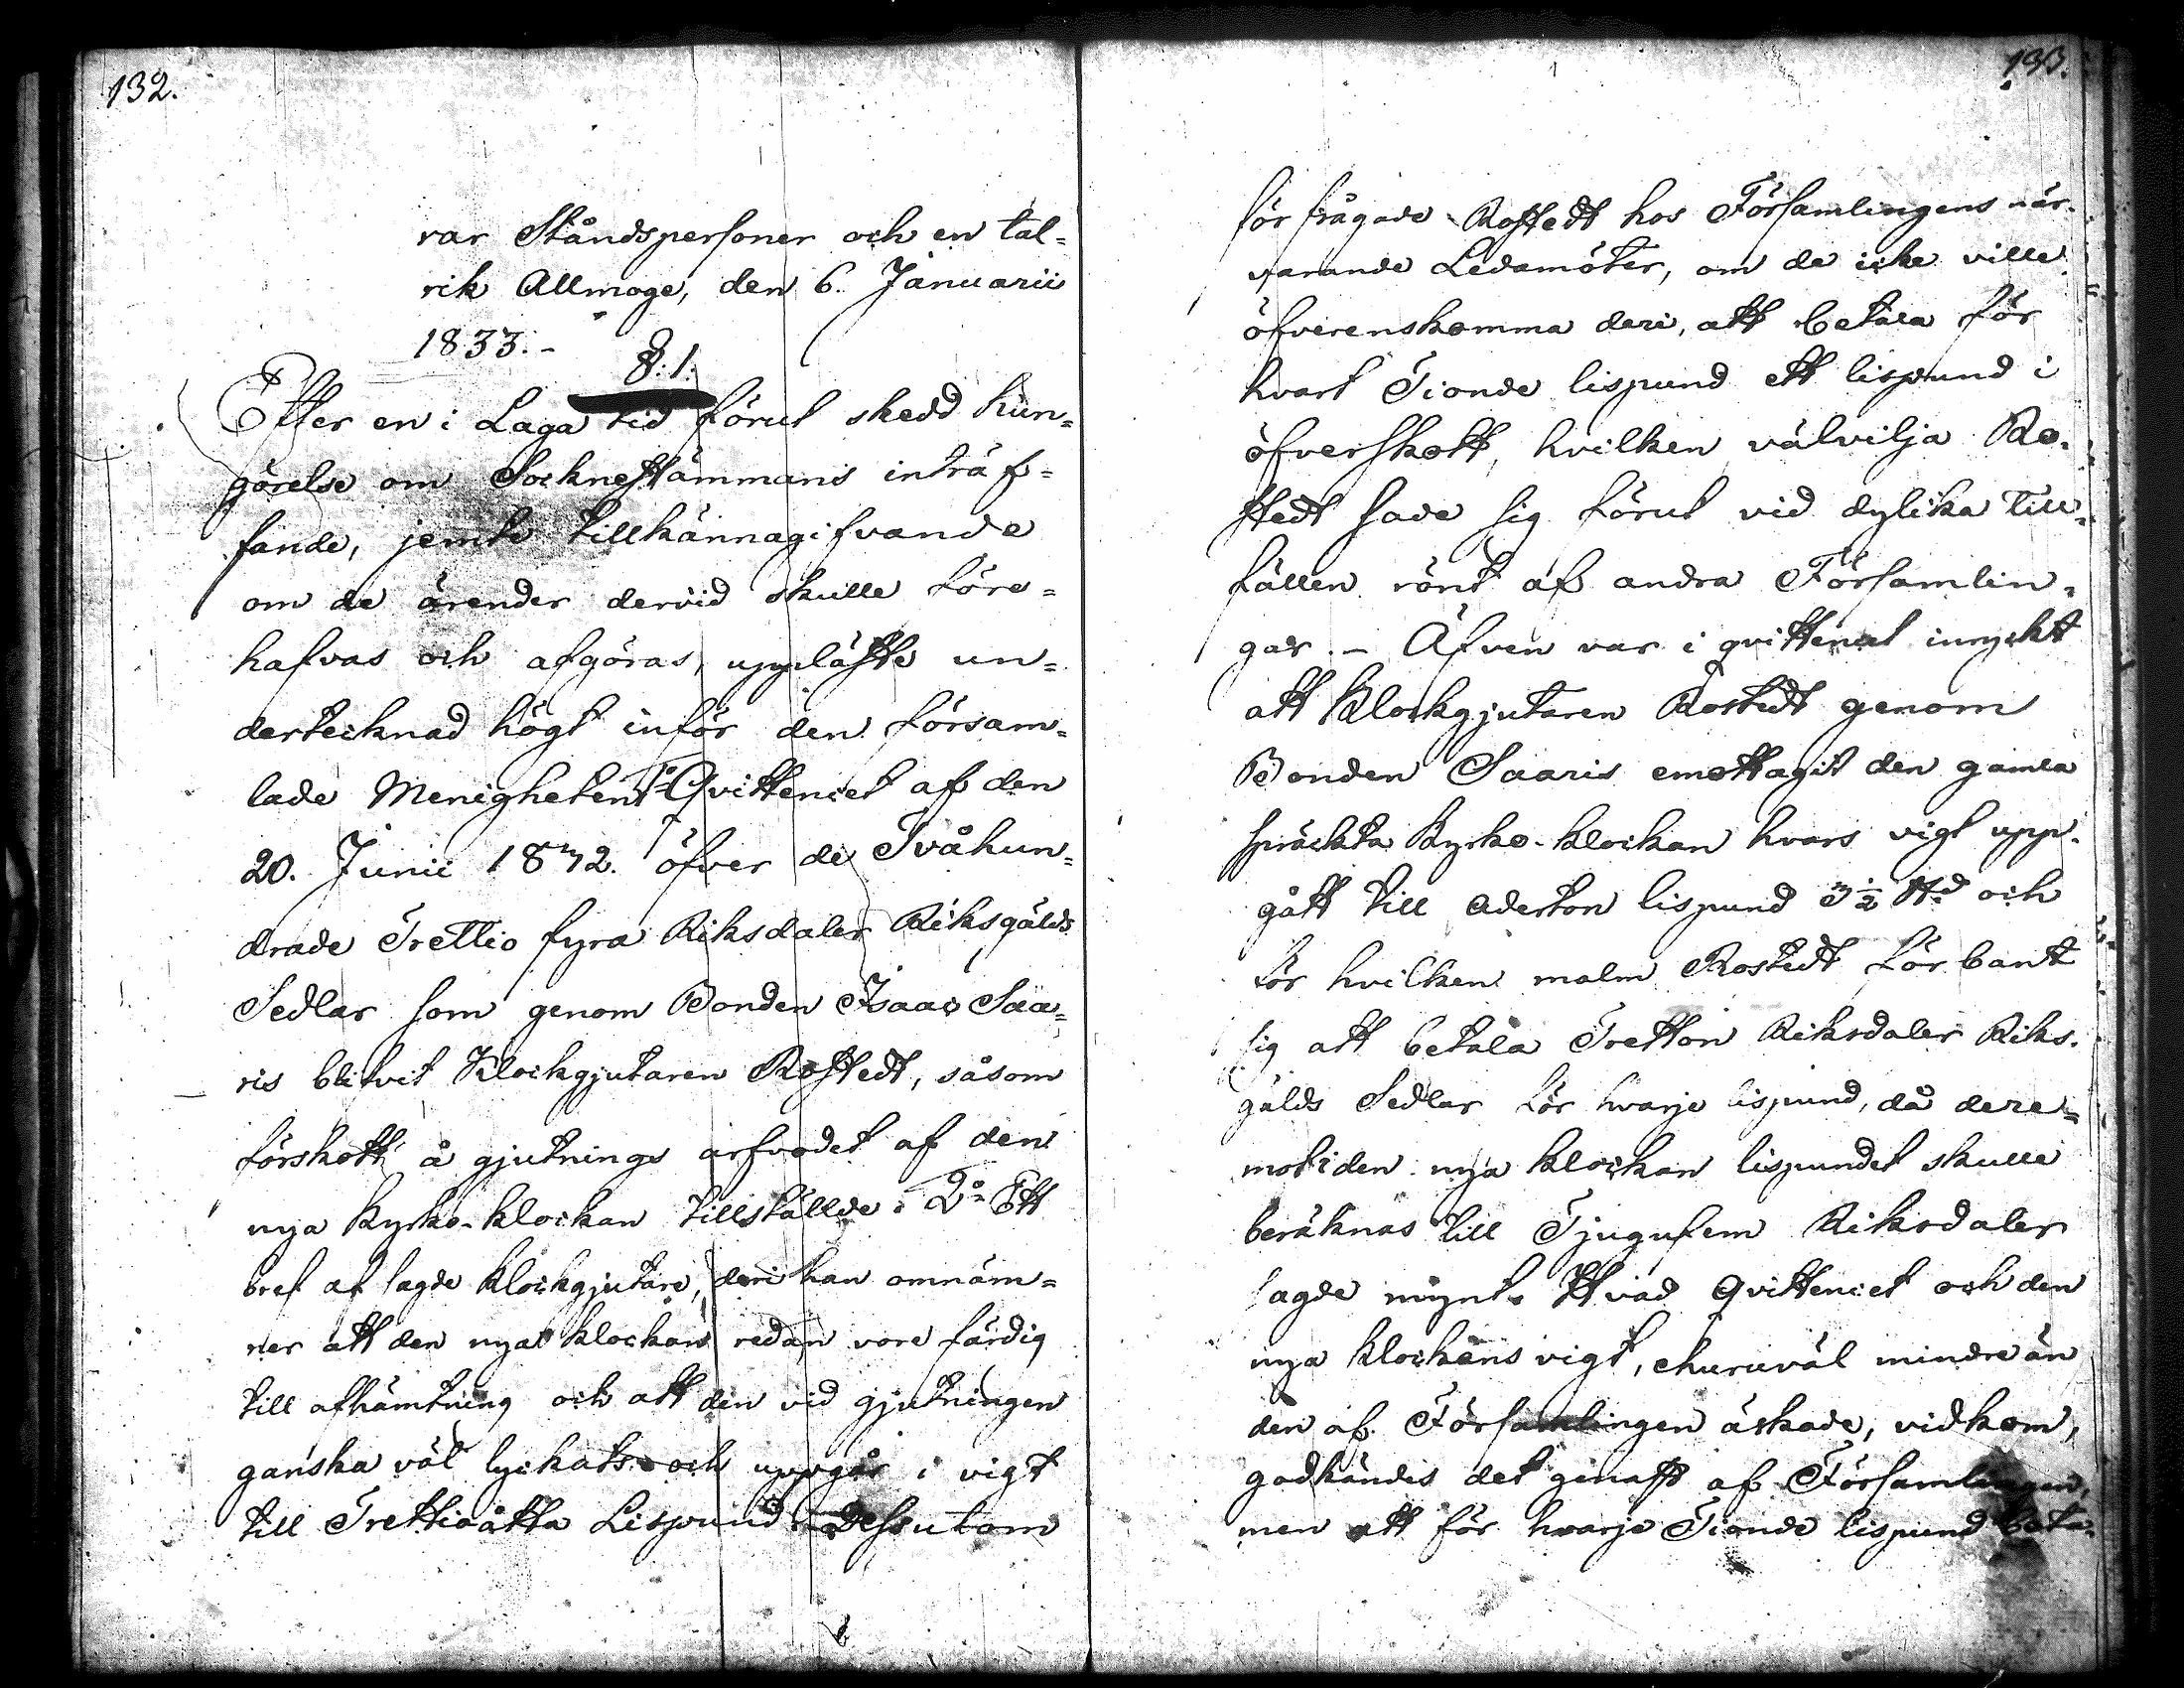 132.
rar Ståndspersoner och en tal=
rik Allmoge, den 6. Januarii
1833.-
§. 1.
Efter en i Laga tid förut skedd kun=
görelse om Sockneståmmans inträf=
fande, jemte tillkännagifvande
om de ärender dervid skulle före=
hafvas och afgöras, uppläste un=
dertecknad högt inför den försam=
lade Menigheten 1º Qvittencet af den
20. Junii 1832. öfver de Tvåhun=
drade Trettio fyra Riksdaler Riksgälds
Sedlar som genom Bonden Isaac Saa=
ris blifvit Klockgjutaren Rostedt, såsom
förskott å gjutnings arfvodet af den
nya Kyrko-klockan tillställde: 2º Ett
bref af sagde klockgjutare, deri han omnäm=
ner att den nya klockan redan vore färdig
till afhämtning och att den vid gjutningen
ganska väl lyckats och uppgår i vigt
till Trettioåtta Lispund. Dessutom
133.
förfrågade Rostedt hos Församlingens när-
varande Ledamöter, om de icke ville
öfverenskomma deri, att betala för
hvart Tionde lispund ett lispund i
öfverskott, hvilken välvilja Ro-
stedt sade sig förut vid dylika till=
fällen rönt af andra Församlin=
gar. - Äfven var i qvittencet inryckt
att Klockgjutaren Rostedt genom
Bonden Saaris emottagit den gamla
spräckta Kyrko-klockan hvars vigt upp-
gått till Aderton lispund 3 1/2 ℔d och
för hvilken malm Rostedt förbant
sig att betala Tretton Riksdaler Riks-
gälds Sedlar för hvarje lispund, då dere=
mot i den nya klockan lispundet skulle
beräknas till Tjugufem Riksdaler
sagde mynt. Hvad Qvittencet och den
nya klockans vigt, ehuruväl mindre än
den af Församlingen äskade, vidkom,
godkändes det genast af Församlingen,
men att för hvarje Tionde lispund beta-